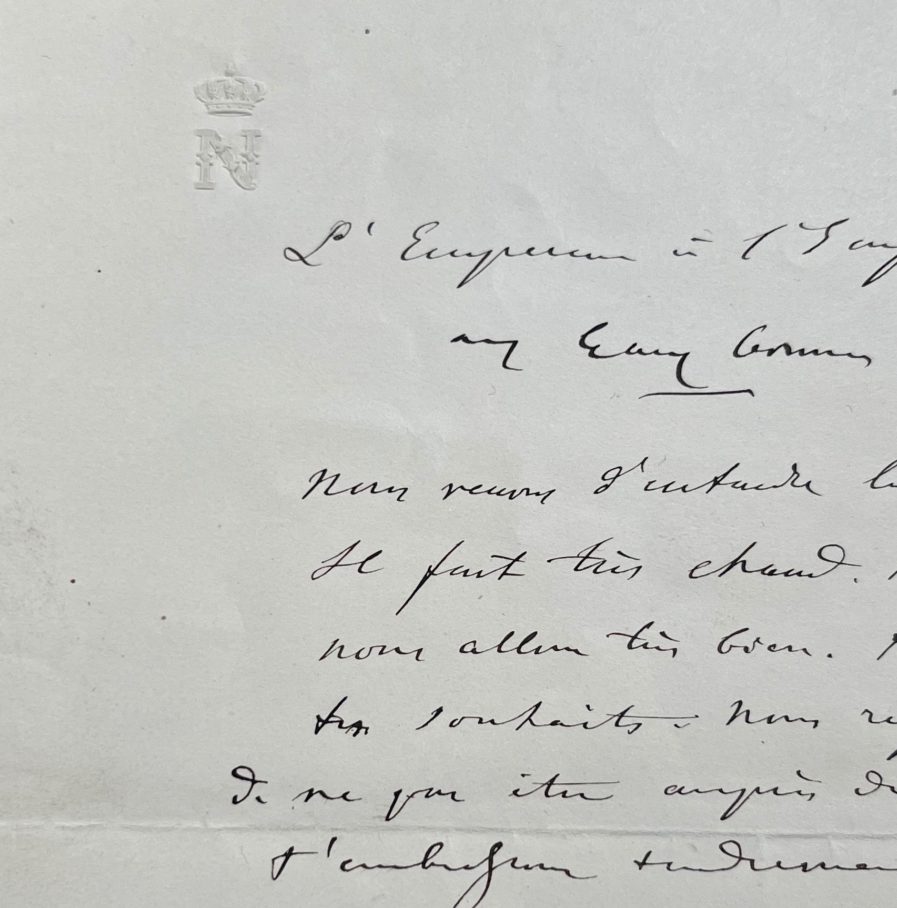 N
L'Empereur à l'Imp
aux Eaux Bonnes
Nous venons d'entendre la
Il fait très chaud.
nous allons très bien.
tes souhaits. Nous re
de ne pas être auprès de
t'embrassons tendremen